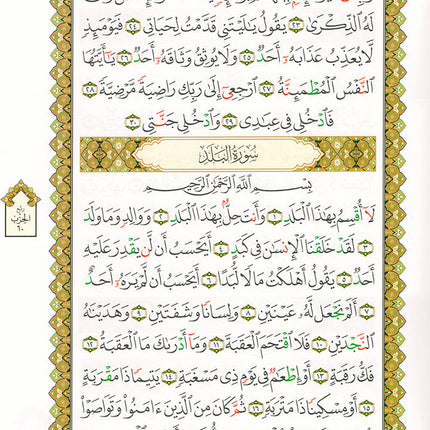 لَهُ ٱلذِّكْرَىٰ ٢٣ يَقُولُ يَٰلَيْتَنِى قَدَّمْتُ لِحَيَاتِى ٢٤ فَيَوْمَئِذٍ
لَّا يُعَذِّبُ عَذَابَهُۥٓ أَحَدٌ ٢٥ وَلَا يُوثِقُ وَثَاقَهُۥٓ أَحَدٌ ٢٦ يَٰٓأَيَّتُهَا
ٱلنَّفْسُ ٱلْمُطْمَئِنَّةُ ٢٧ ٱرْجِعِىٓ إِلَىٰ رَبِّكِ رَاضِيَةً مَّرْضِيَّةً ٢٨
فَٱدْخُلِى فِى عِبَٰدِى ٢٩ وَٱدْخُلِى جَنَّتِى ٣٠
سُورَةُ ٱلْبَلَدِ
بِسْمِ ٱللَّهِ ٱلرَّحْمَٰنِ ٱلرَّحِيمِ
لَآ أُقْسِمُ بِهَٰذَا ٱلْبَلَدِ ١ وَأَنتَ حِلٌّۢ بِهَٰذَا ٱلْبَلَدِ ٢ وَوَالِدٍ وَمَا وَلَدَ
٣ لَقَدْ خَلَقْنَا ٱلْإِنسَٰنَ فِى كَبَدٍ ٤ أَيَحْسَبُ أَن لَّن يَقْدِرَ عَلَيْهِ
أَحَدٌ ٥ يَقُولُ أَهْلَكْتُ مَالًا لُّبَدًا ٦ أَيَحْسَبُ أَن لَّمْ يَرَهُۥٓ أَحَدٌ
٧ أَلَمْ نَجْعَل لَّهُۥ عَيْنَيْنِ ٨ وَلِسَانًا وَشَفَتَيْنِ ٩ وَهَدَيْنَٰهُ
ٱلنَّجْدَيْنِ ١٠ فَلَا ٱقْتَحَمَ ٱلْعَقَبَةَ ١١ وَمَآ أَدْرَىٰكَ مَا ٱلْعَقَبَةُ ١٢
فَكُّ رَقَبَةٍ ١٣ أَوْ إِطْعَٰمٌ فِى يَوْمٍ ذِى مَسْغَبَةٍ ١٤ يَتِيمًا ذَا مَقْرَبَةٍ
١٥ أَوْ مِسْكِينًا ذَا مَتْرَبَةٍ ١٦ ثُمَّ كَانَ مِنَ ٱلَّذِينَ ءَامَنُوا۟ وَتَوَاصَوْا۟
ربع
الحزب
٦٠